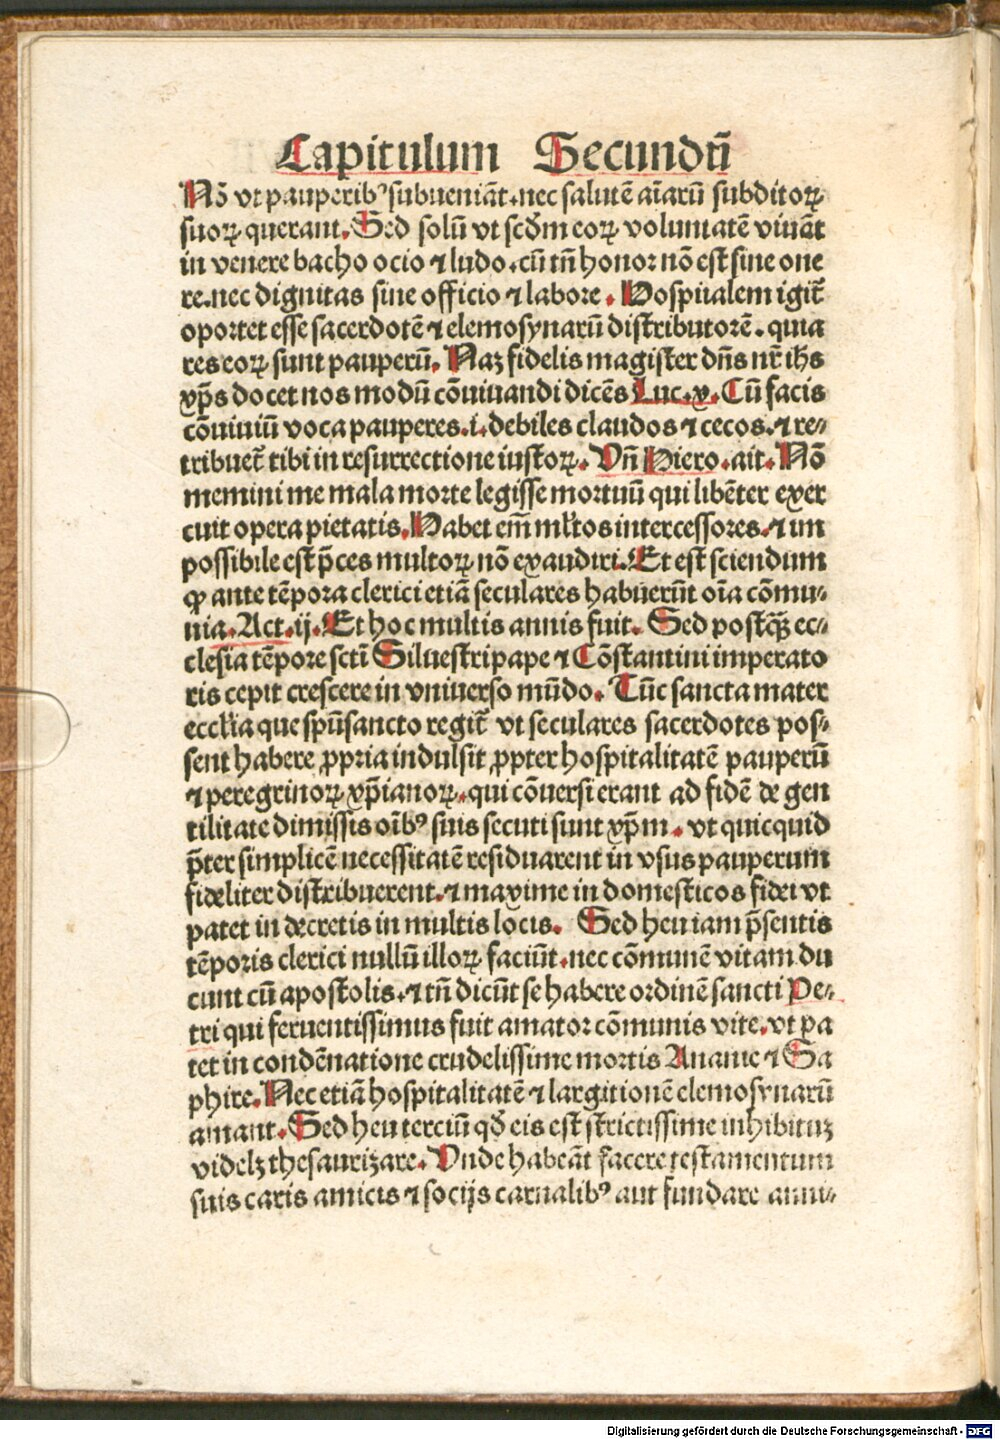 Capitulum Secundũ
Nõ vt pauperibꝰ subueniãt. nec salutẽ aĩarũ subditoꝝ
suoꝝ querant. Sed solũ vt scđm eoꝝ voluntatẽ viuãt
in venere bacho ocio ⁊ ludo. cũ tñ honor nõ est sine one
re. nec dignitas sine officio ⁊ labore. Hospitalem igit̃
oportet esse sacerdotẽ ⁊ elemosynarũ distributorẽ. quia
res eoꝝ sunt pauperũ. Naz fidelis magister dñs nr̃ ihs
xp̃s docet nos modũ cõuiuandi dicẽs Luc. x. Cũ facis
cõuiuiũ voca pauperes. i. debiles claudos ⁊ cecos. ⁊ re⸗
tribuet̃ tibi in resurrectione iustoꝝ. Vñ Hiero. ait. Nõ
memini me mala morte legisse mortuũ qui libẽter exer
cuit opera pietatis. Habet em̃ ml̃tos intercessores. ⁊ im
possibile est p̃ces multoꝝ nõ exaudiri. Et est sciendum
ꝙ ante tẽpora clerici etiã seculares habuerũt oĩa cõmu⸗
nia. Act. ij. Et hoc multis annis fuit. Sed postq̃ꝫ ec⸗
clesia tẽpore sctĩ Siluestri pape ⁊ Cõstantini imperato
ris cepit crescere in vniuerso mũdo. Tũc sancta mater
eccl̃ia que spũsancto regit̃ vt seculares sacerdotes pos⸗
sent habere ꝓpria indulsit ꝓpter hospitalitatẽ pauperũ
⁊ peregrinoꝝ xp̃ianoꝝ. qui cõuersi erant ad fidẽ de gen
tilitate dimissis oĩbꝰ suis secuti sunt xp̃m. vt quicquid
p̃ter simplicẽ necessitatẽ residuarent in vsus pauperum
fideliter distribuerent. ⁊ maxime in domesticos fidei vt
patet in decretis in multis locis. Sed heu iam p̃sentis
tẽporis clerici nullũ illoꝝ faciũt. nec cõmunẽ vitam du
cunt cũ apostolis. ⁊ tñ dicũt se habere ordinẽ sancti Pe⸗
tri qui feruentissimus fuit amator cõmunis vite. vt pa
tet in condẽnatione crudelissime mortis Ananie ⁊ Sa
phire. Nec etiã hospitalitatẽ ⁊ largitionẽ elemosynarũ
amant. Sed heu terciũ qđ eis est strictissime inhibituꝫ
videlꝫ thesaurizare. Vnde habeãt facere testamentum
suis caris amicis ⁊ socijs carnalibꝰ aut fundare anni⸗
Digitalisierung gefördert durch die Deutsche Forschungsgemeinschaft - DFG